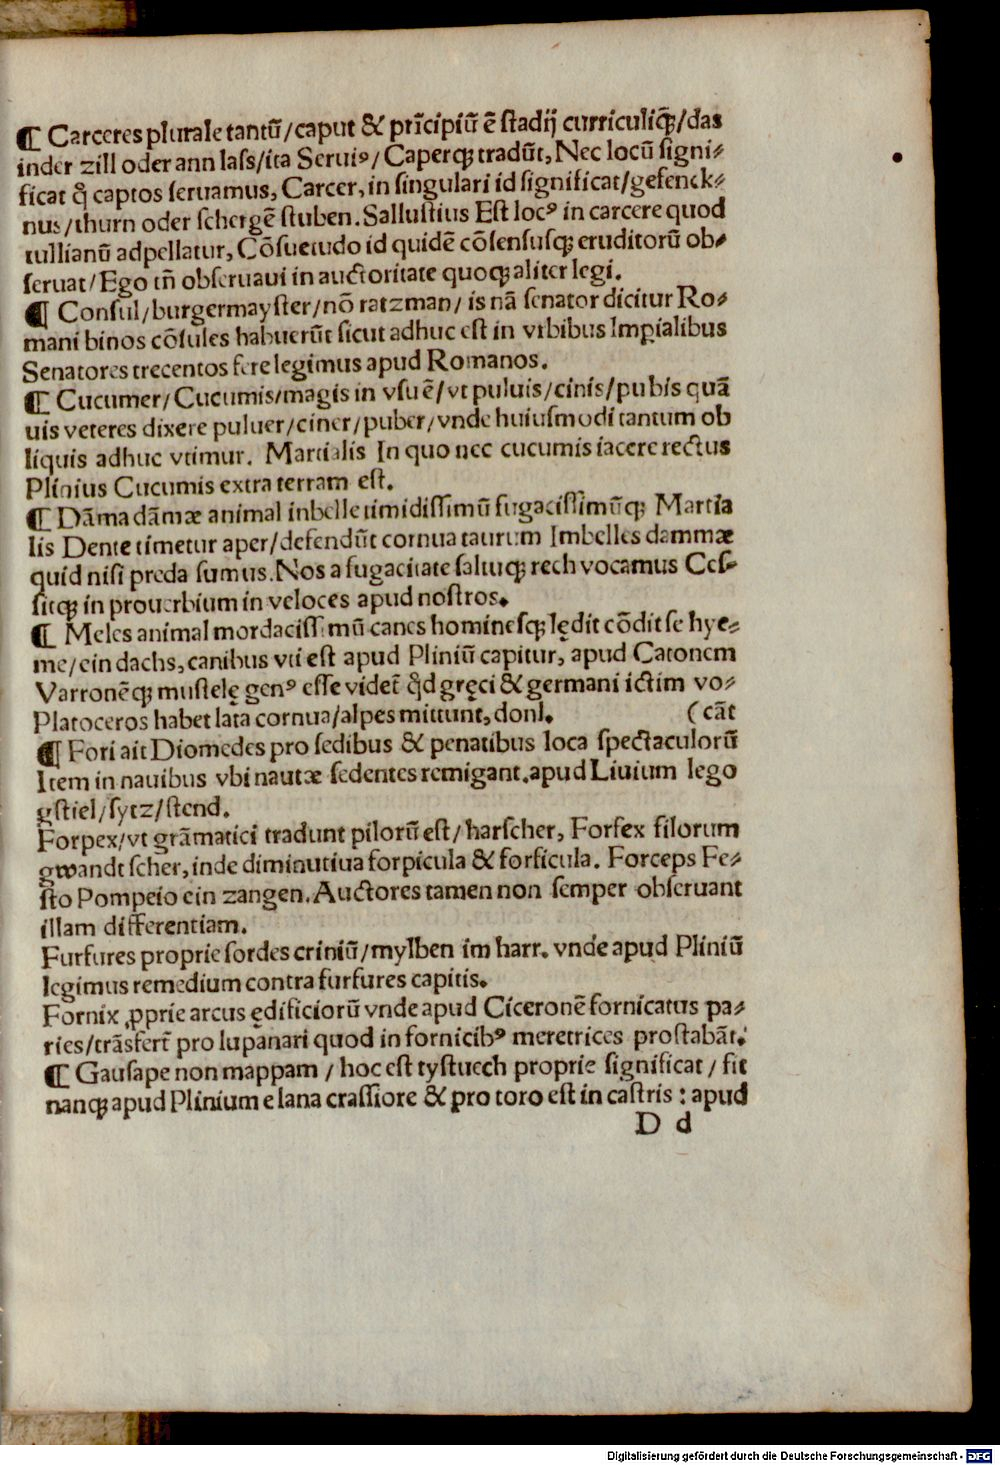 ¶ Carceres plurale tantū/caput & prīcipiū ē stadij curriculiq̃/das
inder zill oder ann lass/ita Seruiꝰ/Caperqꝫ tradūt, Nec locū signi⸗
ficat q̃ captos seruamus, Carcer, in singulari id significat/gefenck⸗
nus/thurn oder schergē stuben. Sallustius Est locꝰ in carcere quod
tullianū adpellatur, Cōsuetudo id quidē cōsensusqꝫ eruditorū ob⸗
seruat/Ego tñ obseruaui in auctoritate quoqꝫ aliter legi.
¶ Consul/burgermayster/nō ratzman/is nā senator dicitur Ro⸗
mani binos cōsules habuerūt sicut adhuc est in vrbibus Imp̱ialibus
Senatores trecentos fere legimus apud Romanos.
¶ Cucumer/Cucumis/magis in vsu ē/vt puluis/cinis/pubis quā
uis veteres dixere puluer/ciner/puber/vnde huiusmodi tantum ob
liquis adhuc vtimur. Martialis In quo nec cucumis iacere rectus
Plinius Cucumis extra terram est.
¶ Dāma dāmæ animal inbelle timidissimū fugacissimūqꝫ Martia
lis Dente timetur aper/defendūt cornua taurum Imbelles dammæ
quid nisi preda sumus. Nos a fugacitate saltuqꝫ rech vocamus Ces⸗
sitqꝫ in prouerbium in veloces apud nostros.
¶ Meles animal mordacissimū canes hominesqꝫ lędit cōdit se hye⸗
me/ein dachs, canibus vti est apud Pliniū capitur, apud Catonem
Varronēqꝫ mustelę genꝰ esse videt᷑ q̃d gręci & germani ictim vo⸗
Platoceros habet lata cornua/alpes mittunt, donl. (cāt
¶ Fori ait Diomedes pro sedibus & penatibus loca spectaculorū
Item in nauibus vbi nautæ sedentes remigant. apud Liuium lego
gstiel/sytz/stend.
Forpex/vt grāmatici tradunt pilorū est/harscher, Forfex filorum
gwandt scher, inde diminutiua forpicula & forficula. Forceps Fe⸗
sto Pompeio ein zangen. Auctores tamen non semper obseruant
illam differentiam.
Furfures proprie sordes criniū/mylben im harr. vnde apud Pliniū
legimus remedium contra furfures capitis.
Fornix ꝓprie arcus ędificiorū vnde apud Ciceronē fornicatus pa⸗
ries/trāsfert᷑ pro lupanari quod in fornicibꝰ meretrices prostabāt.
¶ Gausape non mappam/hoc est tystuech proprie significat/fit
nanqꝫ apud Plinium e lana crassiore & pro toro est in castris: apud
D d
Digitalisierung gefördert durch die Deutsche Forschungsgemeinschaft - DFG